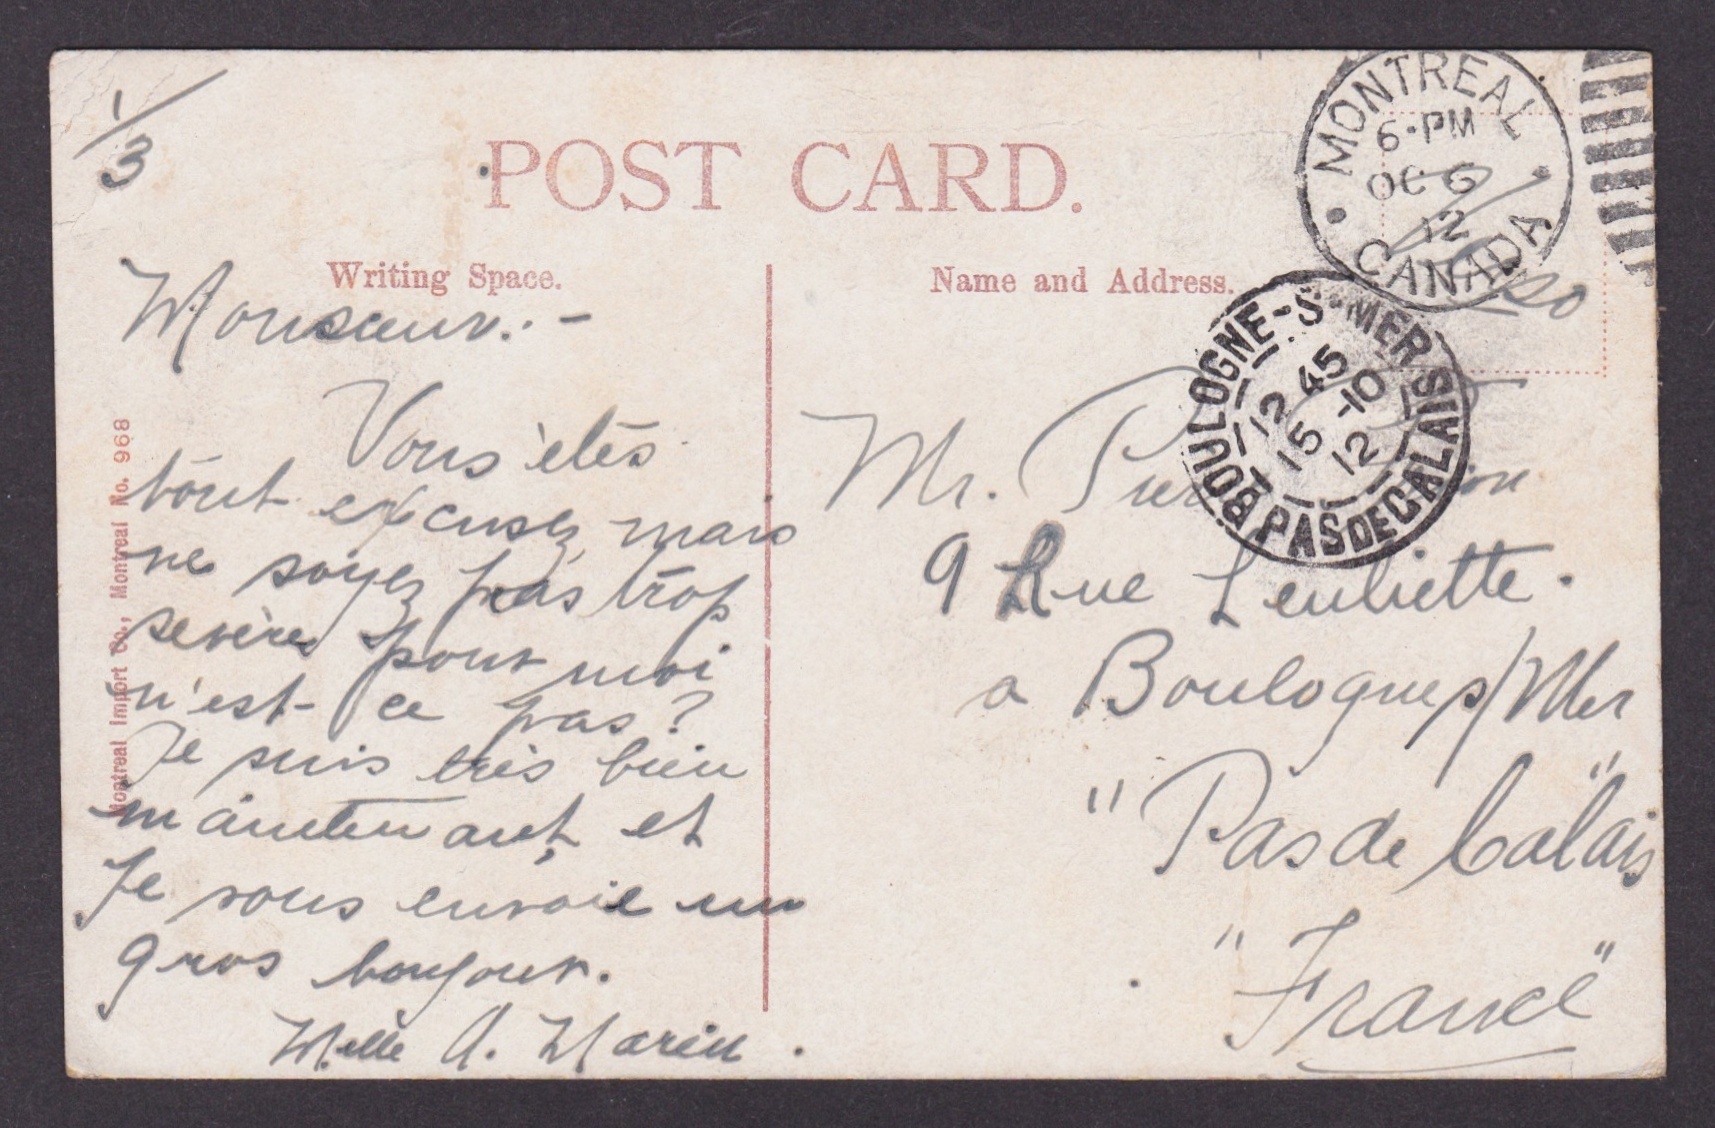 1/3
POST CARD.
Writing Space.
Name and Address.
MONTREAL
6-PM
OC 6
12
CANADA
BOULOGNE-S-MER
12 45
15-10
12
PAS DE CALAIS
Monsieur.-
Vous êtes
tout excusez mais
ne soyez pas trop
sevère pour moi
n'est-ce pas?
Je suis très bien
maintenant et
Je vous envoie un
gros bonjour.
Melle A. Marien.
Mr.
9 Rue Leuliette.
a Boulogne s/Mer
"Pas de Calais"
"France"
Montreal Import Co., Montreal No. 968